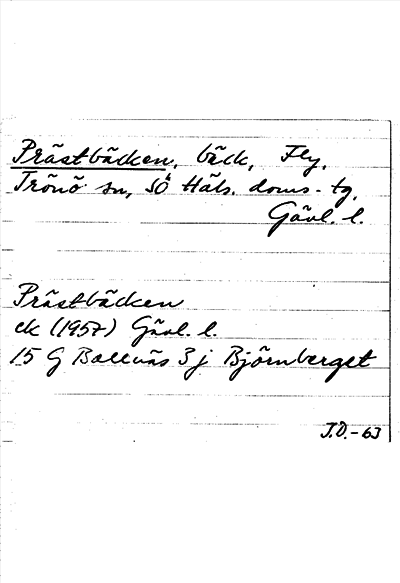 Prästbäcken, bäck, Fly,
Trönö sn, SÖ Häls. doms.-tg,
Gävl. l.
Prästbäcken
ek (1957) Gävl. l.
15 G Bollnäs 3 j Björnberget
J.Ö.-63